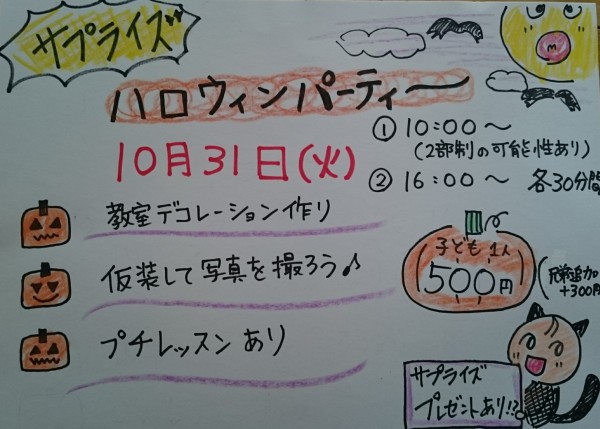 サプライズ
ハロウィンパーティー
10月31日(火)
① 10:00〜
(2部制の可能性あり)
② 16:00〜 各30分間
教室デコレーション作り
仮装して写真を撮ろう♪
プチレッスンあり
子ども1人
500円
(兄弟追加
+300円
サプライズ
プレゼントあり!?